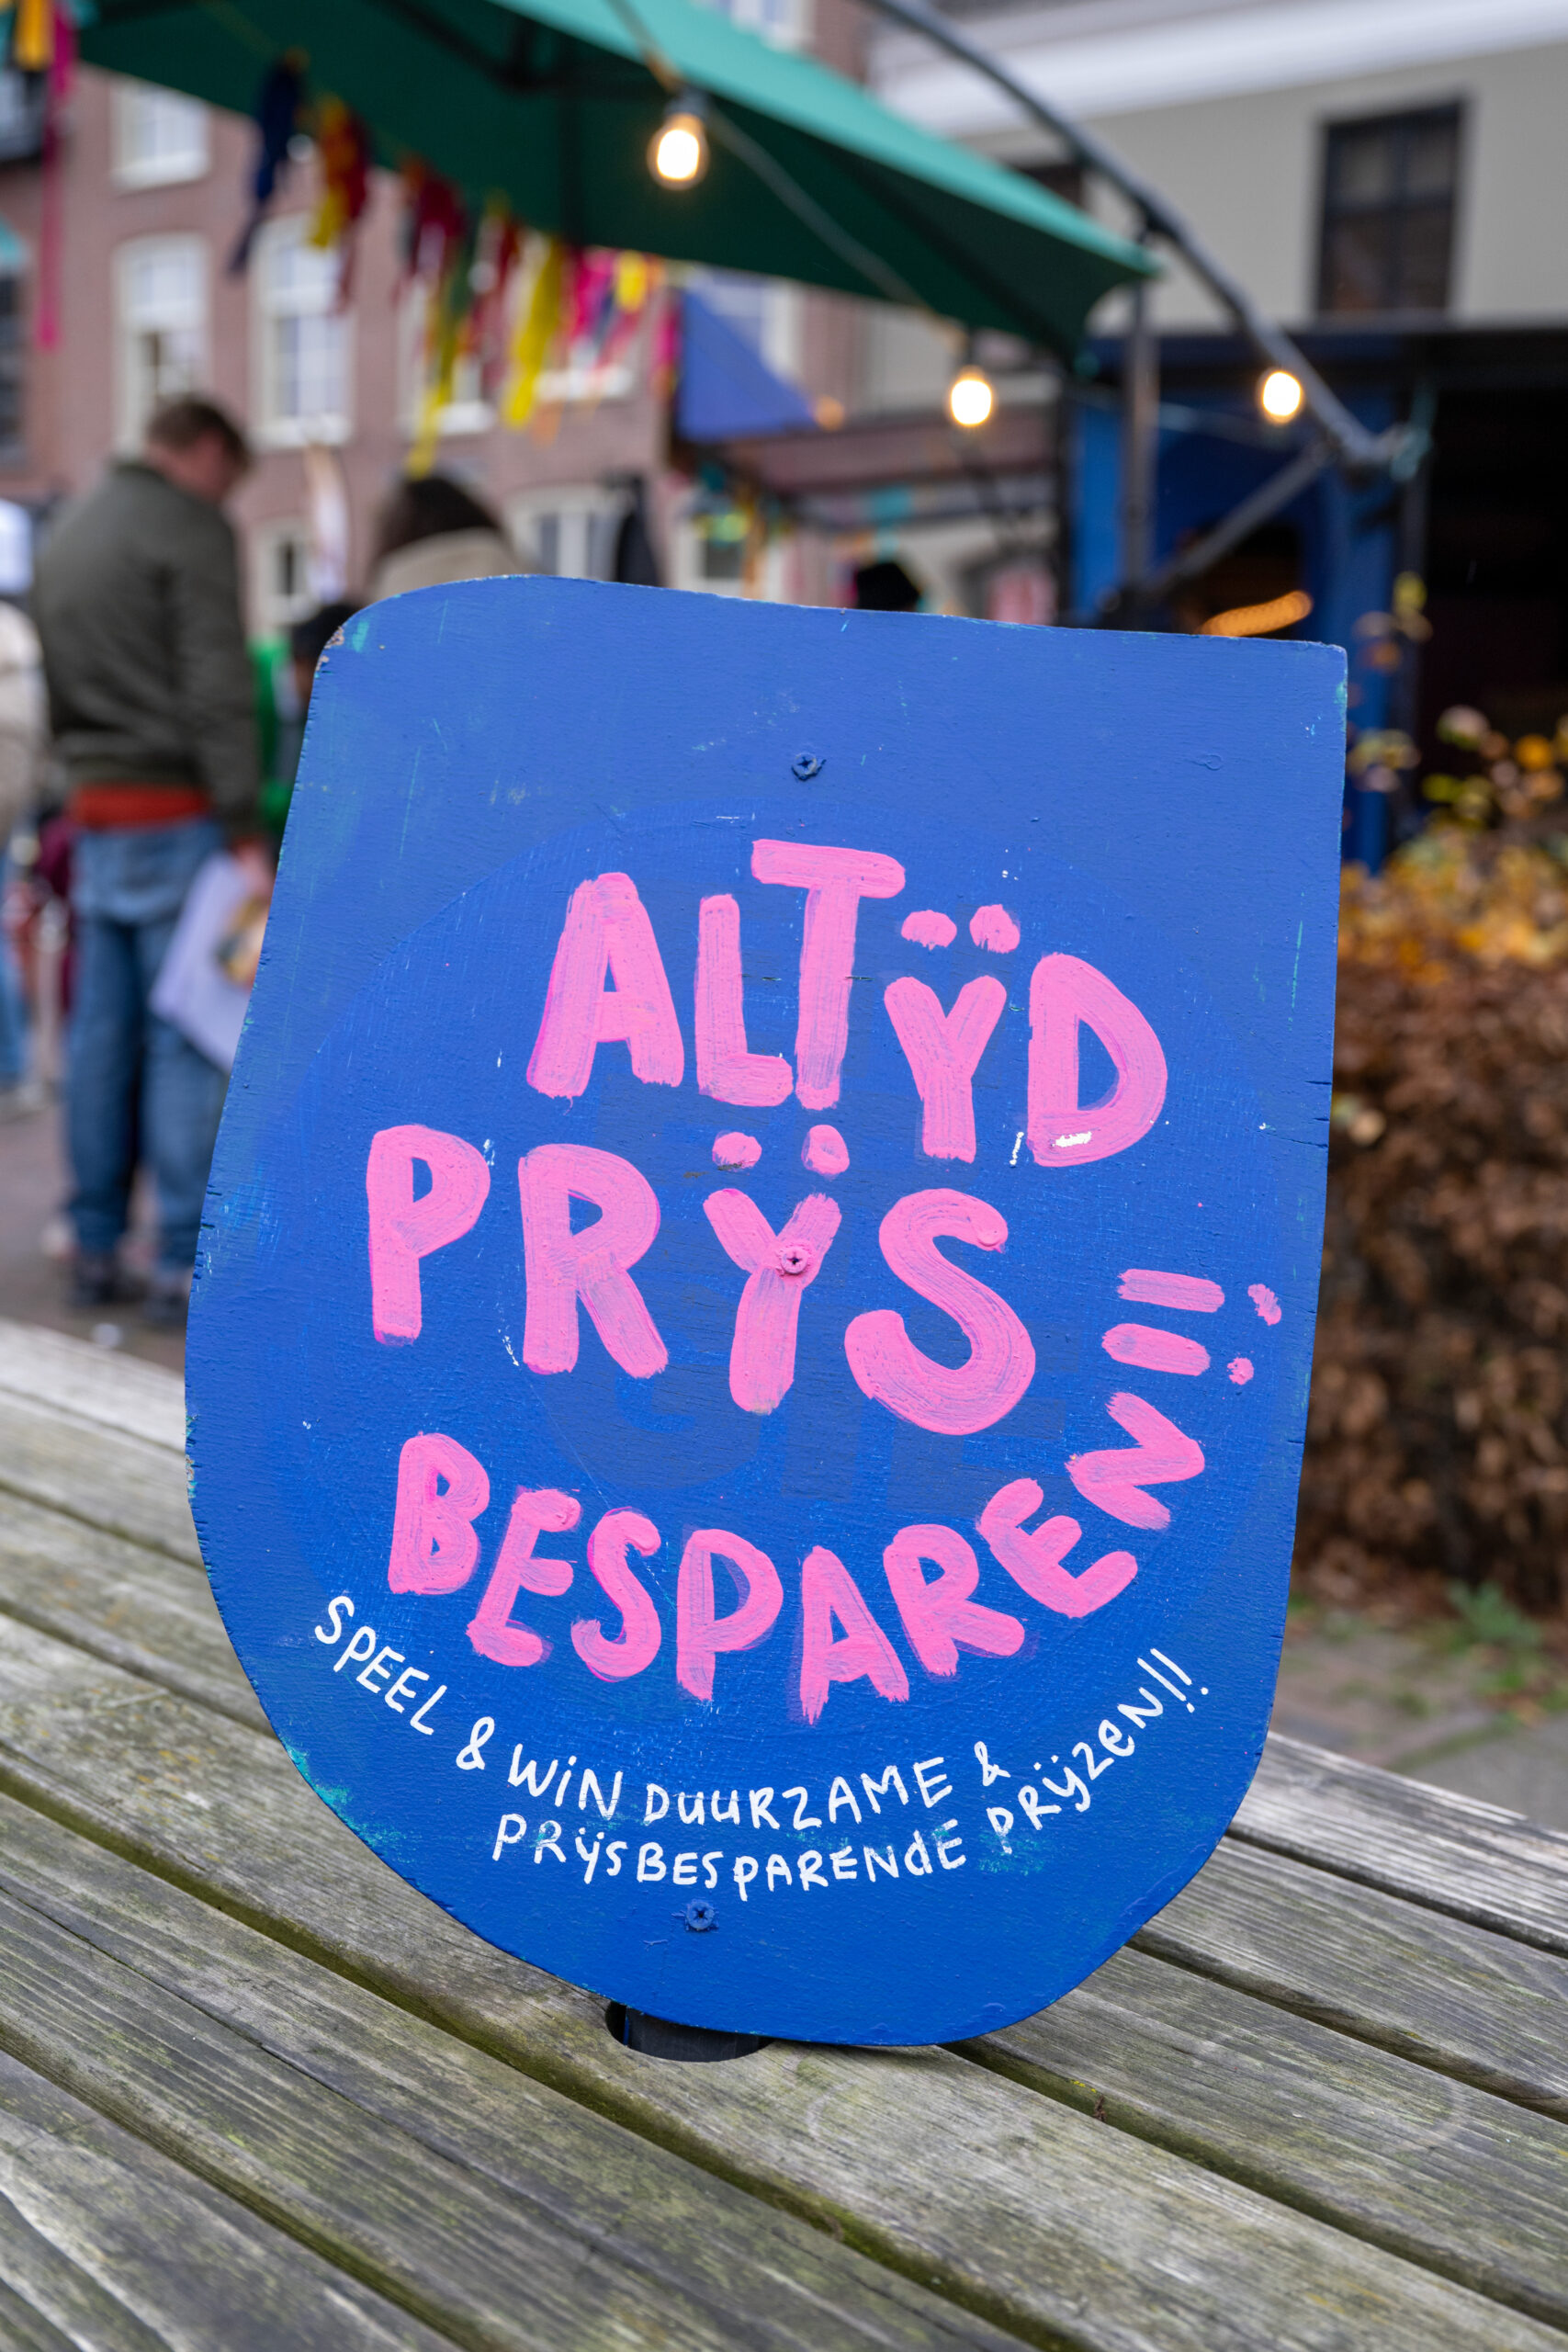 ALTŸD
PRŸS
BESPAREN!!
SPEEL & WiN DUURZAME &
PRÿSBESPARENdE PRijzen!!